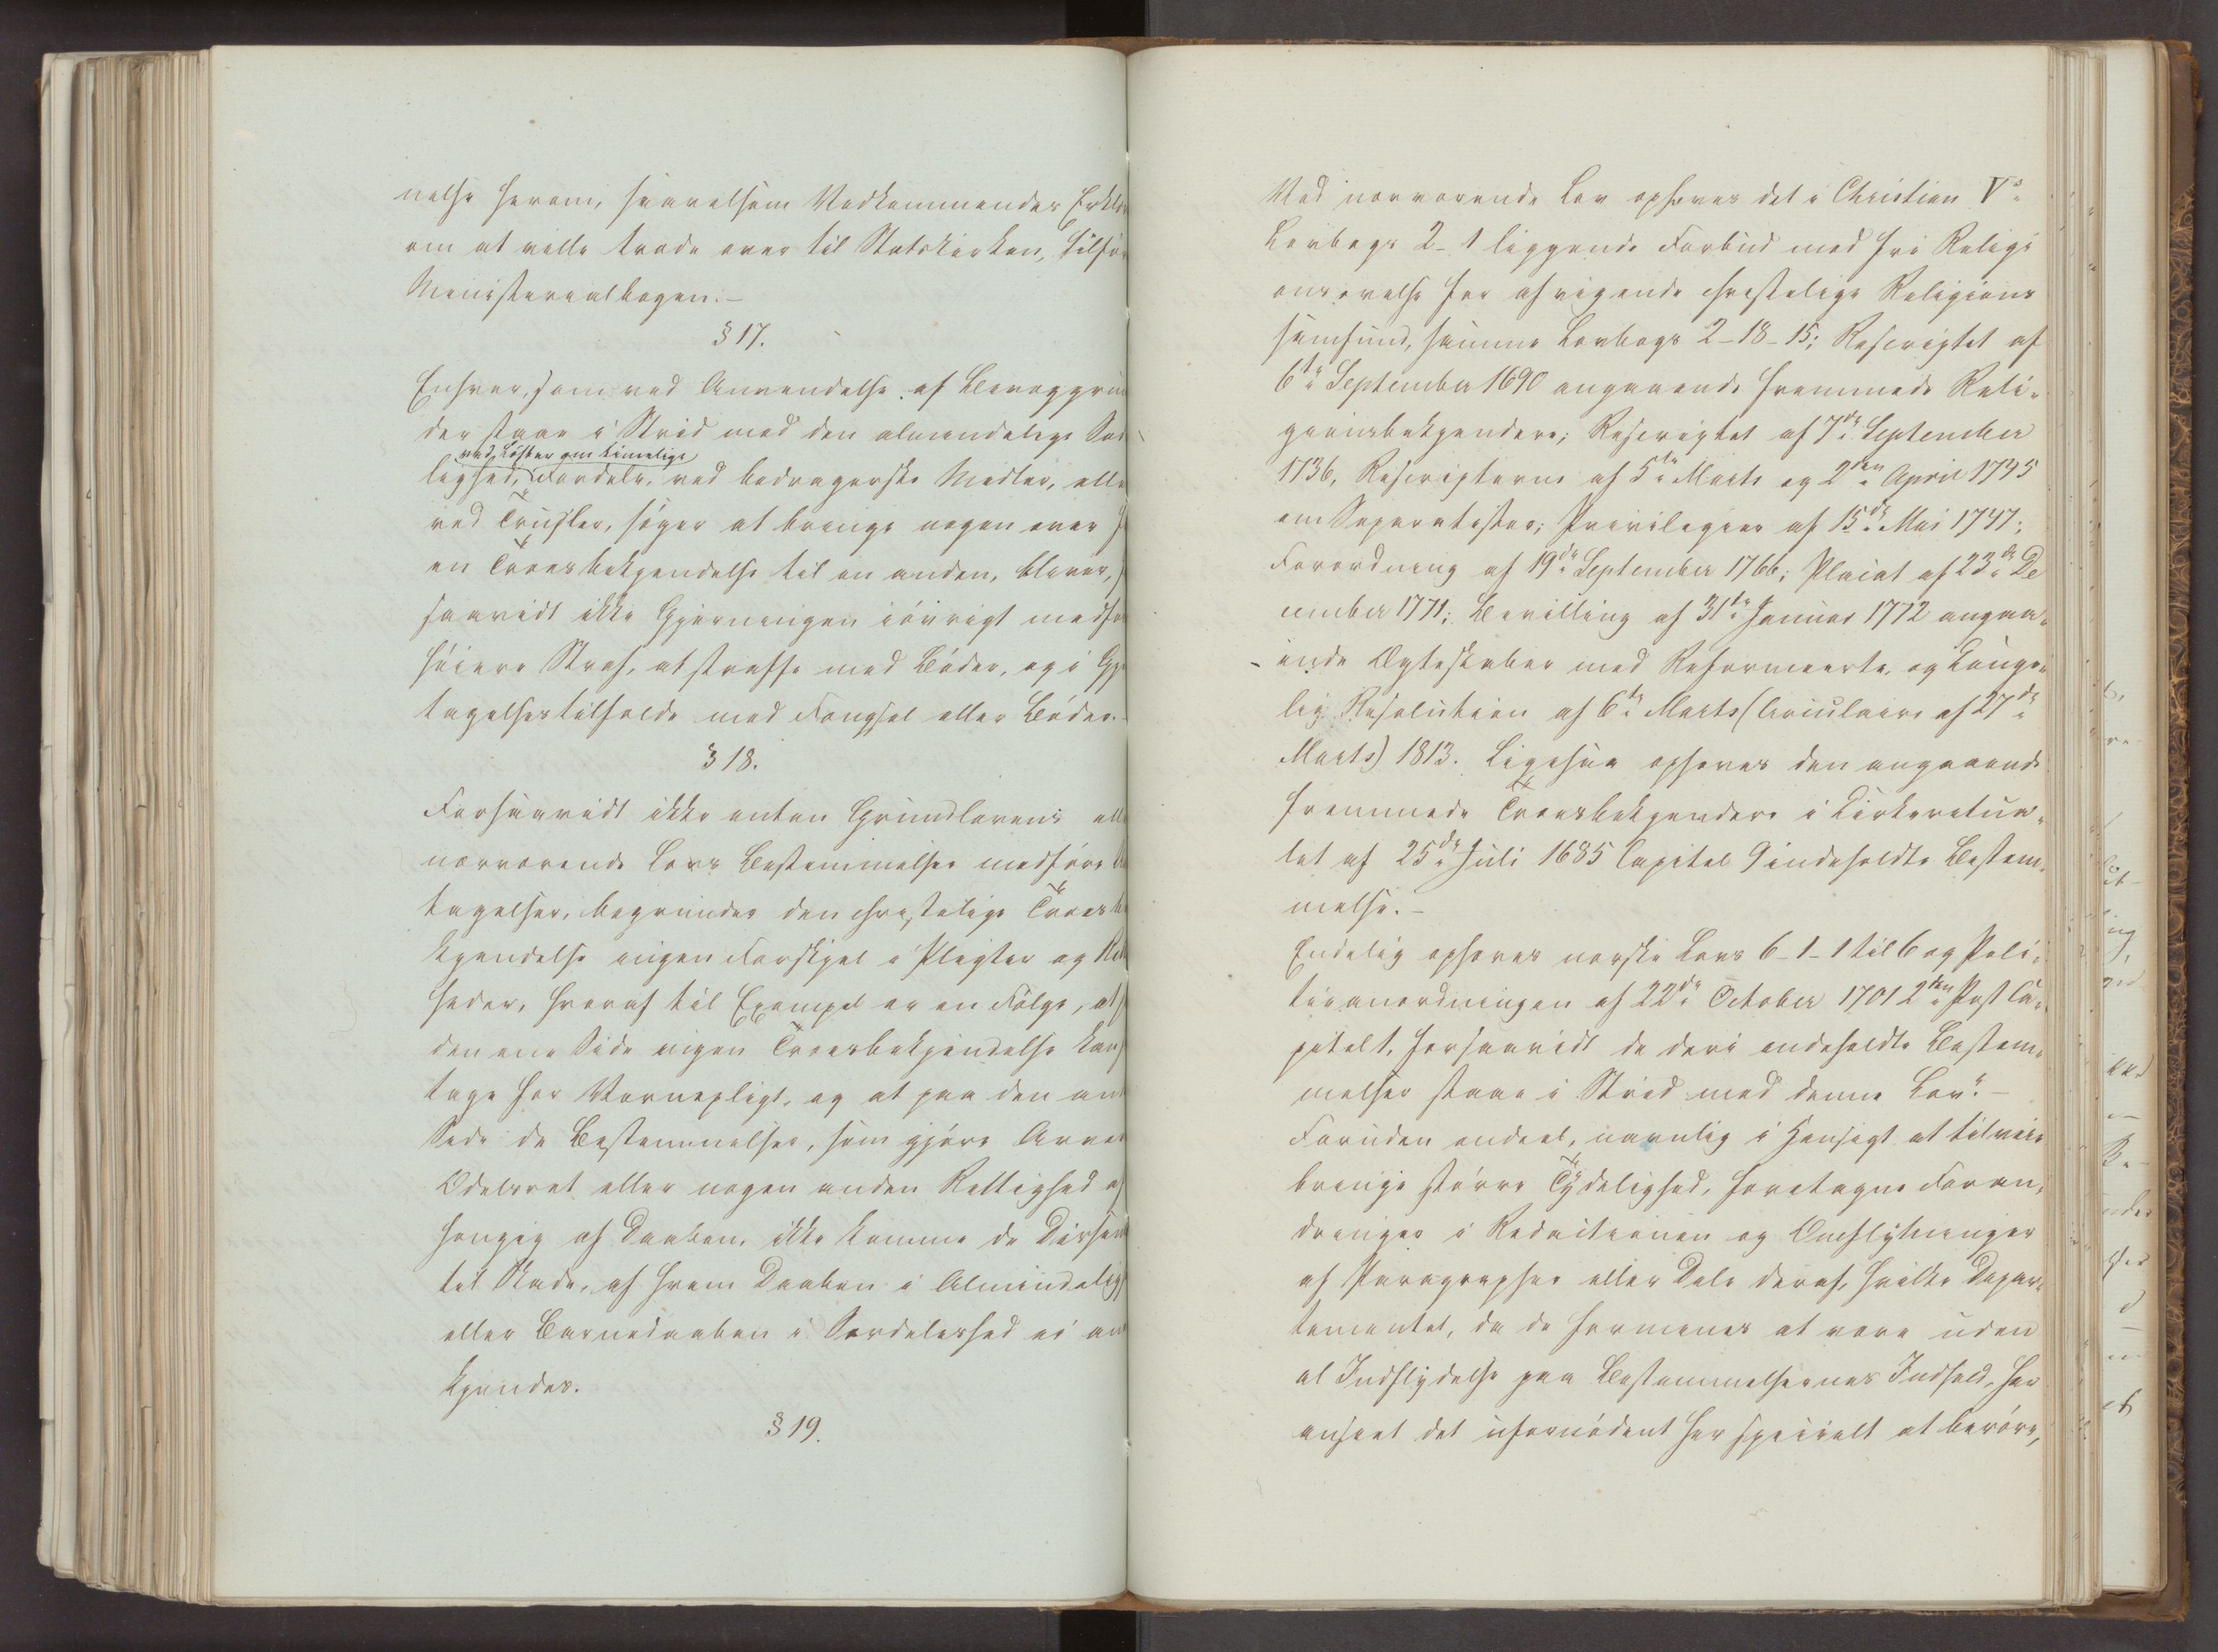 nelse herom, saavelsom Vedkommendes Erklæ
om at ville træde over til Statskirken, tilfør
Ministerialbogen.-
§ 17.
Enhver, som ved Anvendelse af Bevæggrun
der staae i Strid med den almindelige Sæd
ved Løfter om timelige
lighed, Fordele, ved bedragerske Midler, elle
ved Trusler, søger at bringe nogen over f
en Troesbekjendelse til en anden, bliver,
saavidt ikke Gjerningen iøvrigt medfør
høiere Straf, at straffe med Bøder, og i Gje
tagelsestilfælde med Fængsel eller Bøder.-
§ 18.
Forsaavidt ikke enten Grundlovens elle
nærværende Lovs Bestemmelser medføre
tagelser, begrunder den christelige Troesbe
kjendelse ingen Forskjel i Pligter og Ret
heder, hvoraf til Exempel er en Følge, at
den ene Side ingen Troesbekjendelse kan
tage for Værnepligt, og at paa den and
Side de Bestemmelser, som gjøre Arve
Odelsret eller nogen anden Rettighed af
hængig af Daaben, ikke komme de Dissen
til Skade, af hvem Daaben i Almindelig
eller Barnedaaben i Særdeleshed ei aner
kjendes.
§ 19.
Ved nærværende Lov ophæves det i Christian V's
Lovbogs 2-1 liggende Forbud mod fri Religi
onsøvelse for afvigende christelige Religions
samfund, samme Lovbogs 2-18-15; Rescriptet af
6te September 1690 angaaende fremmede Reli-
gionsbekjendere; Rescriptet af 7de September
1736, Rescripterne af 5te Marts og 2den April 1745
om Separatister; Privilegier af 15de Mai 1747;
Forordning af 19de September 1766; Placat af 23de De
cember 1771; Bevilling af 31te Januar 1772 angaa-
ende Ægteskaber med Reformeerte, og Konge-
lig Resolution af 6te Marts (Circulaire af 27de
Marts) 1813. Ligesaa ophæves den angaaende
fremmede Troesbekjendere i Kirkeritua-
let af 25de Juli 1685 Capitel 9 indeholdte Bestem-
melse.-
Endelig ophæves norske Lovs 6-1-1 til 6 og Poli-
tieanordningen af 22de October 1701 2den Post Ca-
pitelt, forsaavidt de deri indeholdte Bestem-
melser staae i Strid med denne Lov."-
Foruden endeel, navnlig i Hensigt at tilveie
bringe større Tydelighed, foretagne Foran-
dringer i Redactionen og Omflytninger
af Paragrapher eller Dele deraf, hvilke Depar-
tementet, da de formenes at være uden
al Indflydelse paa Bestemmelsernes Indhold, har
anseet det ufornødent her specielt at berøre,